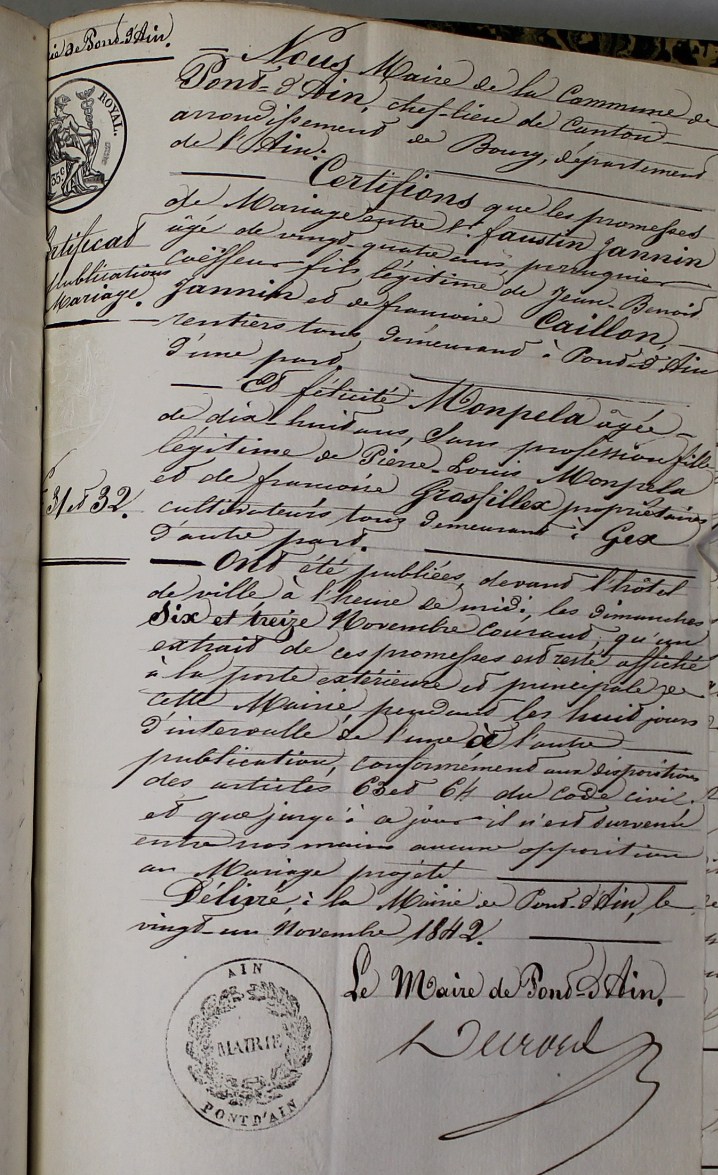 ie de Pont-d'Ain.
ROYAL.
35c
rtificat
Publications
Mariage.
31 et 32.
Nous Maire de la Commune de
Pont-d'Ain, chef-lieu de Canton
arrondissement de Bourg, département
de l'Ain:
Certifions que les promesses
de Mariage entre Sr. faustin Jannin
âgé de vingt-quatre ans, perruquier
coiffeur fils légitime de Jean-Benoit
Jannin et de francoise Caillon,
rentiers tous demeurant à Pont-d'Ain
d'une part.
Et félicité Monpela âgée
de dix-huit ans, Sans profession fille
légitime de Pierre-Louis Monpela
et de francoise Grosfillex propriétaires
cultivateurs tous demeurant à Gex
d'autre part.
Ont été publiées, devant l'hôtel
de ville à l'heure de midi, les dimanches
Six et treize Novembre courant, qu'un
extrait de ces promesses est resté affiché
à la porte extérieure et principale de
cette Mairie, pendant les huit jours
d'intervalle de l'une à l'autre
publication, conformément aux dispositions
des articles 63 et 64 du code civil.
et que jusqu'à ce jour il n'est survenu
entre nos mains aucune opposition
au Mariage projeté
Délivré à la Mairie de Pont-d'Ain, le
vingt-un Novembre 1842.
Le Maire de Pont-d'Ain.
AIN
MAIRIE
PONT D'AIN